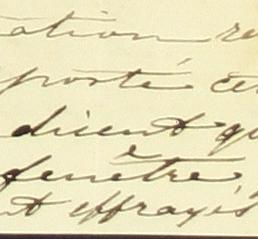 ation re
porté ce
disent qu
fenêtre
nt effrayés